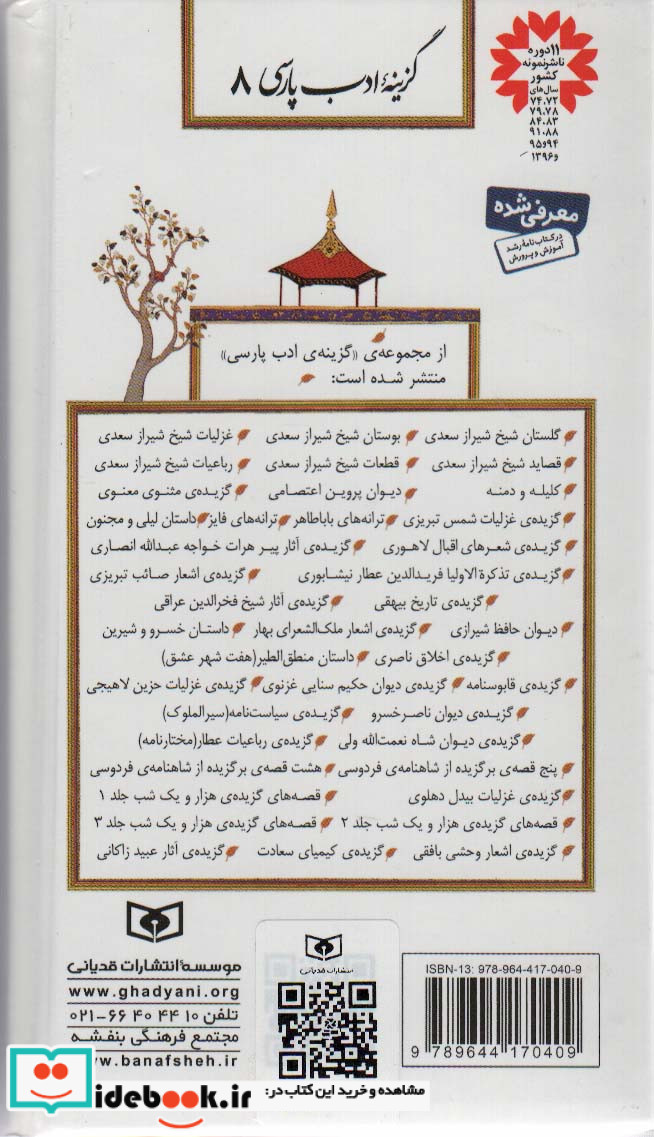 گزینهٔ ادب پارسی ۸
۱۱ دوره
ناشر نمونه
کشور
سال‌های
۷۴،۷۲
۷۹،۷۸
۸۴،۸۳
۹۱،۸۸
۹۴و۹۵
و۱۳۹۶
معرفی شده
در کتاب نامهٔ رشد
آموزش و پرورش
از مجموعه‌ی «گزینه‌ی ادب پارسی»
منتشر شده است:
گلستان شیخ شیراز سعدی بوستان شیخ شیراز سعدی غزلیات شیخ شیراز سعدی
قصاید شیخ شیراز سعدی قطعات شیخ شیراز سعدی رباعیات شیخ شیراز سعدی
کلیله و دمنه دیوان پروین اعتصامی گزیده‌ی مثنوی معنوی
گزیده‌ی غزلیات شمس تبریزی ترانه‌های باباطاهر ترانه‌های فایز داستان لیلی و مجنون
گزیده‌ی شعرهای اقبال لاهوری گزیده‌ی آثار پیر هرات خواجه عبدالله انصاری
گزیده‌ی تذکرة الاولیا فریدالدین عطار نیشابوری گزیده‌ی اشعار صائب تبریزی
گزیده‌ی تاریخ بیهقی گزیده‌ی آثار شیخ فخرالدین عراقی
دیوان حافظ شیرازی گزیده‌ی اشعار ملک‌الشعرای بهار داستان خسرو و شیرین
گزیده‌ی اخلاق ناصری داستان منطق‌الطیر(هفت شهر عشق)
گزیده‌ی قابوسنامه گزیده‌ی دیوان حکیم سنایی غزنوی گزیده‌ی غزلیات حزین لاهیجی
گزیده‌ی دیوان ناصرخسرو گزیده‌ی سیاست‌نامه(سیرالملوک)
گزیده‌ی دیوان شاه نعمت‌الله ولی گزیده‌ی رباعیات عطار(مختارنامه)
پنج قصه‌ی برگزیده از شاهنامه‌ی فردوسی هشت قصه‌ی برگزیده از شاهنامه‌ی فردوسی
گزیده‌ی غزلیات بیدل دهلوی قصه‌های گزیده‌ی هزار و یک شب جلد ۱
قصه‌های گزیده‌ی هزار و یک شب جلد ۲ قصه‌های گزیده‌ی هزار و یک شب جلد ۳
گزیده‌ی اشعار وحشی بافقی گزیده‌ی کیمیای سعادت گزیده‌ی آثار عبید زاکانی
ISBN-13: 978-964-417-040-9
9 789644 170409
انتشارات قدیانی
مشاهده و خرید این کتاب در:
موسسهٔ انتشارات قدیانی
www.ghadyani.org
تلفن ۱۰ ۴۴ ۴۰ ۶۶-۰۲۱
مجتمع فرهنگی بنفشه
www.banafsheh.ir
idebook.ir